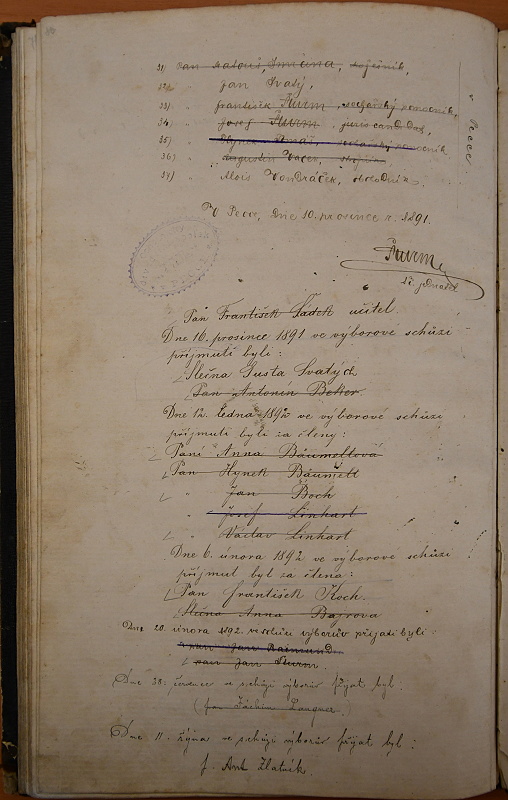 31) Pan Matouš Smrčina,
32) " Jan Svatý,
33) " František Šturm, sochařský pomocník,
34) " Josef Šturm, juris cand.
35) " sochařský pomocník
36) " Augustin Vacek,
37) " Alois Vondráček,
v Pecce
V Pecce, dne 10. prosince r. 1891.
Šturm
t. č. jednatel
Pan František Sádek učitel.
Dne 16. prosince 1891 ve výborové schůzi
přijmuti byli:
Slečna Gusta Svatých
Pan Antonín Beker.
Dne 12. ledna 1892 ve výborové schůzi
přijmuti byli za členy:
Paní Anna Bäumeltová
Pan Hynek Bäumelt
" Jan Boch
" Josef Linhart
" Václav Linhart
Dne 6. února 1892 ve výborové schůzi
přijmut byl za člena:
Pan František Koch.
Slečna Anna Bajrova
Dne 20. února 1892 ve schůzi výborův přijati byli:
pan Jan
pan Jan Šturm.
Dne července ve schůzi výborův přijat byl.
(pan Jáchim Langner.)
Dne 11. října ve schůzi výborův přijat byl:
p. Ant. Zlatník.